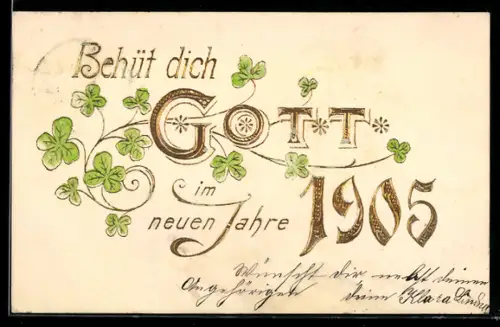 Behüt dich
GOTT
im
neuen Jahre 1905
Wünscht dir nebst deinen
Angehörigen deine Klara